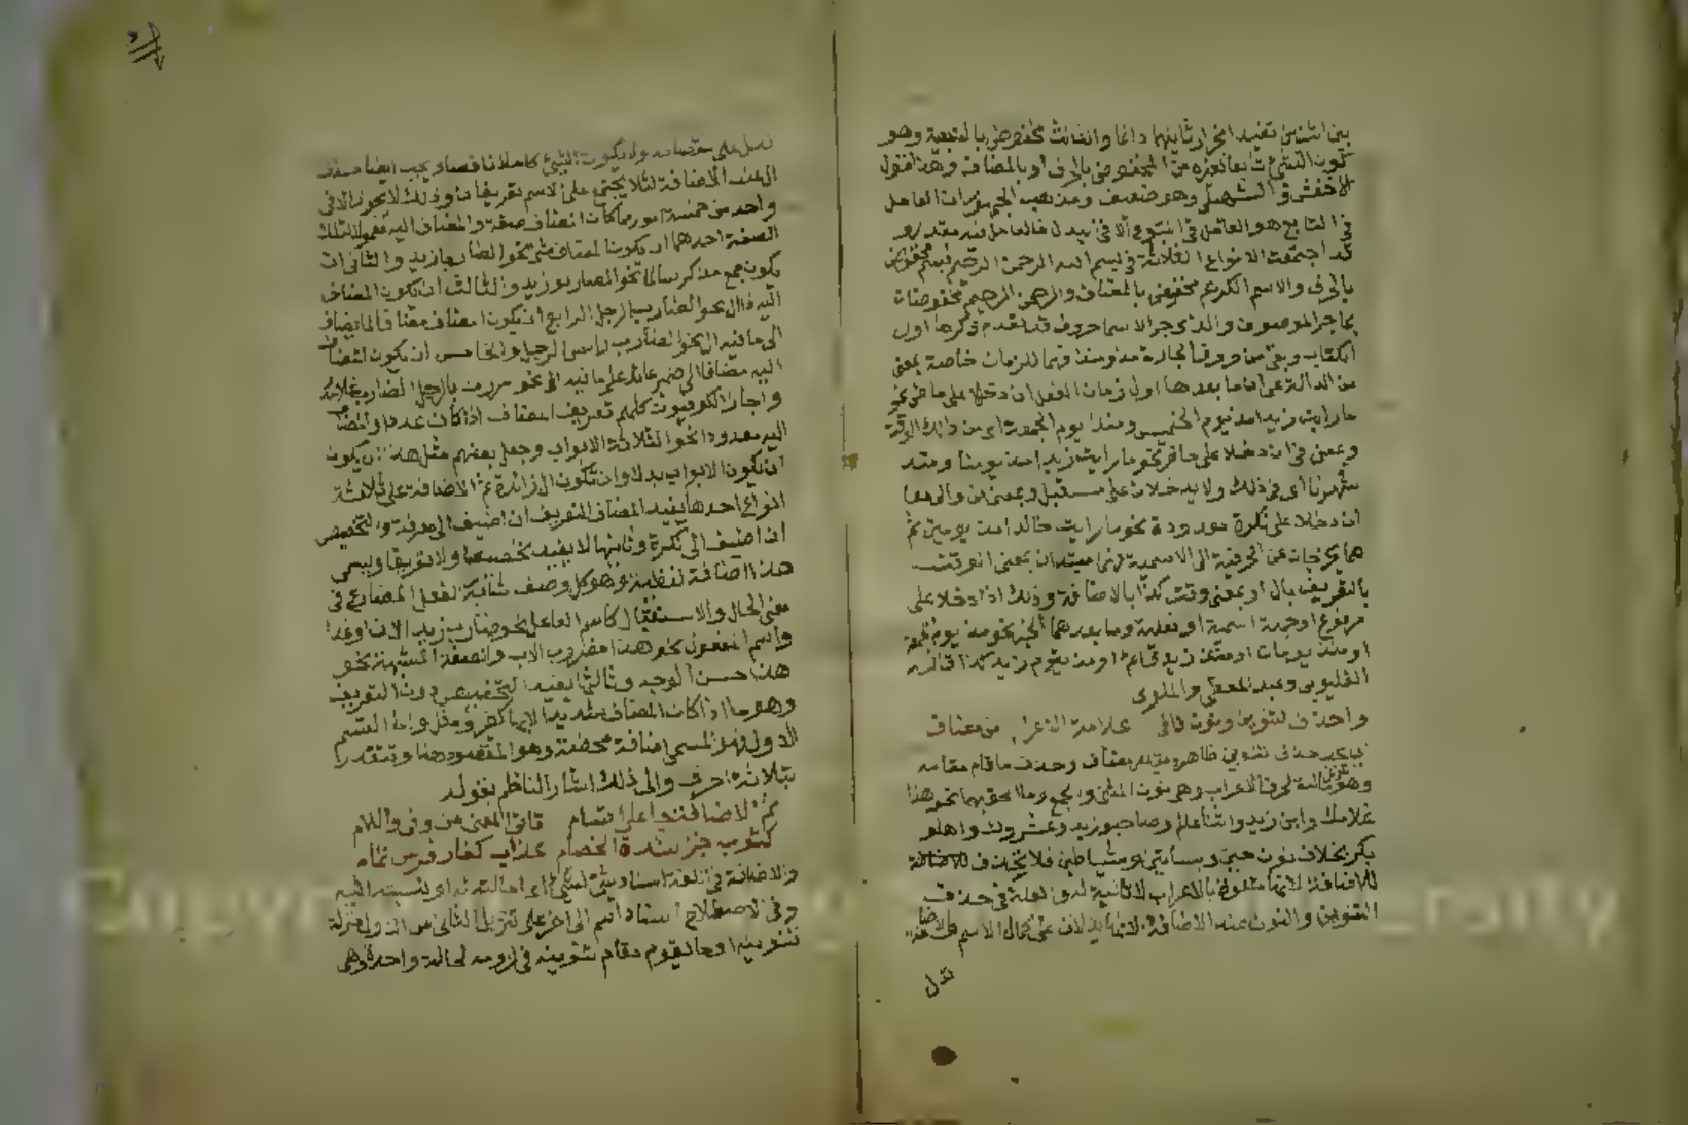 بين اثنين تقييد انجرار ثانيهما دائما والثالث مخفوض بالتبعية وهو
كون الشيء تابعا لغيره من المخفوض بالحرف او بالمضاف وهذا القول
للاخفش والسهيلي وهو ضعيف ومذهب الجمهور ان العامل
في التابع هو العامل في المتبوع الا في البدل فالعامل فيه مقدر و
قد اجتمعت الانواع الثلاثة في بسم الله الرحمن الرحيم فبسم مخفوض
بالحرف والاسم الكريم مخفوض بالمضاف والرحمن الرحيم مخفوضات
بما جر الموصوف والذي يجر الاسما حروف قد تقدم ذكرها اول
الكتاب وبقي من حروف الجارة مذ ومنذ فهما للزمان خاصة بمعنى
من الدالة على ان ما بعدها اول زمان الفعل ان دخلا على ماض نحو
ما رايت زيدا مذ يوم الخميس ومنذ يوم الجمعة اي من ذلك الوقت
وبمعنى في ان دخلا على حاضر نحو ما رايت زيدا مذ يومنا ومنذ
شهرنا اي في ذلك ولا يدخلان على مستقبل وبمعنى من والى معا
ان دخلا على نكرة معدودة نحو ما رايت خالدا مذ يومين ثم
هما يخرجان عن الحرفية الى الاسمية فهما مبتدان بمعنى الوقت
بالتعريف بال او بمعنى وقت كذا بالاضافة وذلك اذا دخلا على
مرفوع او جملة اسمية او فعلية وما بعدهما الخبر نحو مذ يوم الجمعة
او منذ يومان او منذ زيد قائم او منذ يقوم زيد كذا قاله
القليوبي وعبد المعطي والملوي
واحذف لتنوين ونون تالي علامة الاعراب من مضاف
يجب حذف تنوين ظاهر ومقدر بمضاف وحذف ما قام مقامه
وهو نون تالية لحرف الاعراب وهي نون المثنى والجمع وما الحق بهما نحو هذا
غلامك وابن زيد واثنا علم وصاحبو زيد وعشروك واهلو
بكر بخلاف نون حين وبساتين وشياطين فلا تحذف للاضافة
للاضافة لانها متلوة بالاعراب لا تالية له والعلة في حذف
التنوين والنون عند الاضافة لانهما يدلان على كمال الاسم والاضافة
تدل
تدل على نقصانه ولا يكون الشيء كاملا ناقصا ويجب ايضا حذف
ال عند الاضافة لئلا يجتمع على الاسم تعريفان وذلك لا يجوز الا في
واحد من خمسة امور ما كان المضاف صفة والمضاف اليه معمولا لتلك
الصفة احدهما ان يكون المضاف مثنى نحو الضاربا زيد والثاني ان
يكون جمع مذكر سالما نحو الضاربو زيد والثالث ان يكون المضاف
اليه ذا ال نحو الضارب الرجل الرابع ان يكون المضاف مضافا لما يضاف
الى ما فيه ال نحو الضارب راس الرجل والخامس ان يكون المضاف
اليه مضافا الى ضمير عائد على ما فيه ال نحو مررت بالرجل الضارب غلامه
واجاز الكوفيون كلهم تعريف المضاف اذا كان عددا والمضاف
اليه معدودا نحو الثلاثة الابواب وجعل بعضهم مثل هذا ان يكون
ان يكون الابواب بدلا وان تكون ال زائدة ثم الاضافة على ثلاثة
انواع احدها يفيد المضاف التعريف ان اضيف الى معرفة والتخصيص
ان اضيف الى نكرة وثانيها لا يفيد تخصيصا ولا تعريفا ويسمى
هذا اضافة لفظية وهو كل وصف شابه الفعل المضارع في
معنى الحال والاستقبال كاسم الفاعل نحو ضارب زيد الان او غدا
واسم المفعول نحو هذا مضروب الاب والصفة المشبهة نحو
هذا حسن الوجه وثالثها يفيد التخصيص دون التعريف
وهو ما اذا كان المضاف شديد الابهام كغير ومثل واما القسم
الاول فهو المسمى اضافة محضة وهو المقصود هنا وتتقدر
بثلاثة احرف والى ذلك اشار الناظم بقوله
ثم الاضافة على اقسام تاتي المعنى من وفي واللام
كثوب خز شدة الخصام عذاب كفار فرس تمام
والاضافة في اللغة اسناد شيء لشيء او امالته له او نسبته اليه
وفي الاصطلاح اسناد اسم الى اخر على تنزيل الثاني من الاول منزلة
تنوينه او ما يقوم مقام تنوينه في لزومه لحالة واحدة وهي